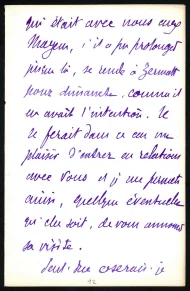 qui était avec nous aux
Mayens, s'il a pu prolonger
jusque là, se rende à Zermatt
pour dimanche, comme il
en avait l'intention. Il
se ferait dans ce cas un
plaisir d'entrer en relations
avec vous et je me permets
ainsi, quelque éventuelle
qu'elle soit, de vous annoncer
sa visite.
Peut-être oserais-je
92